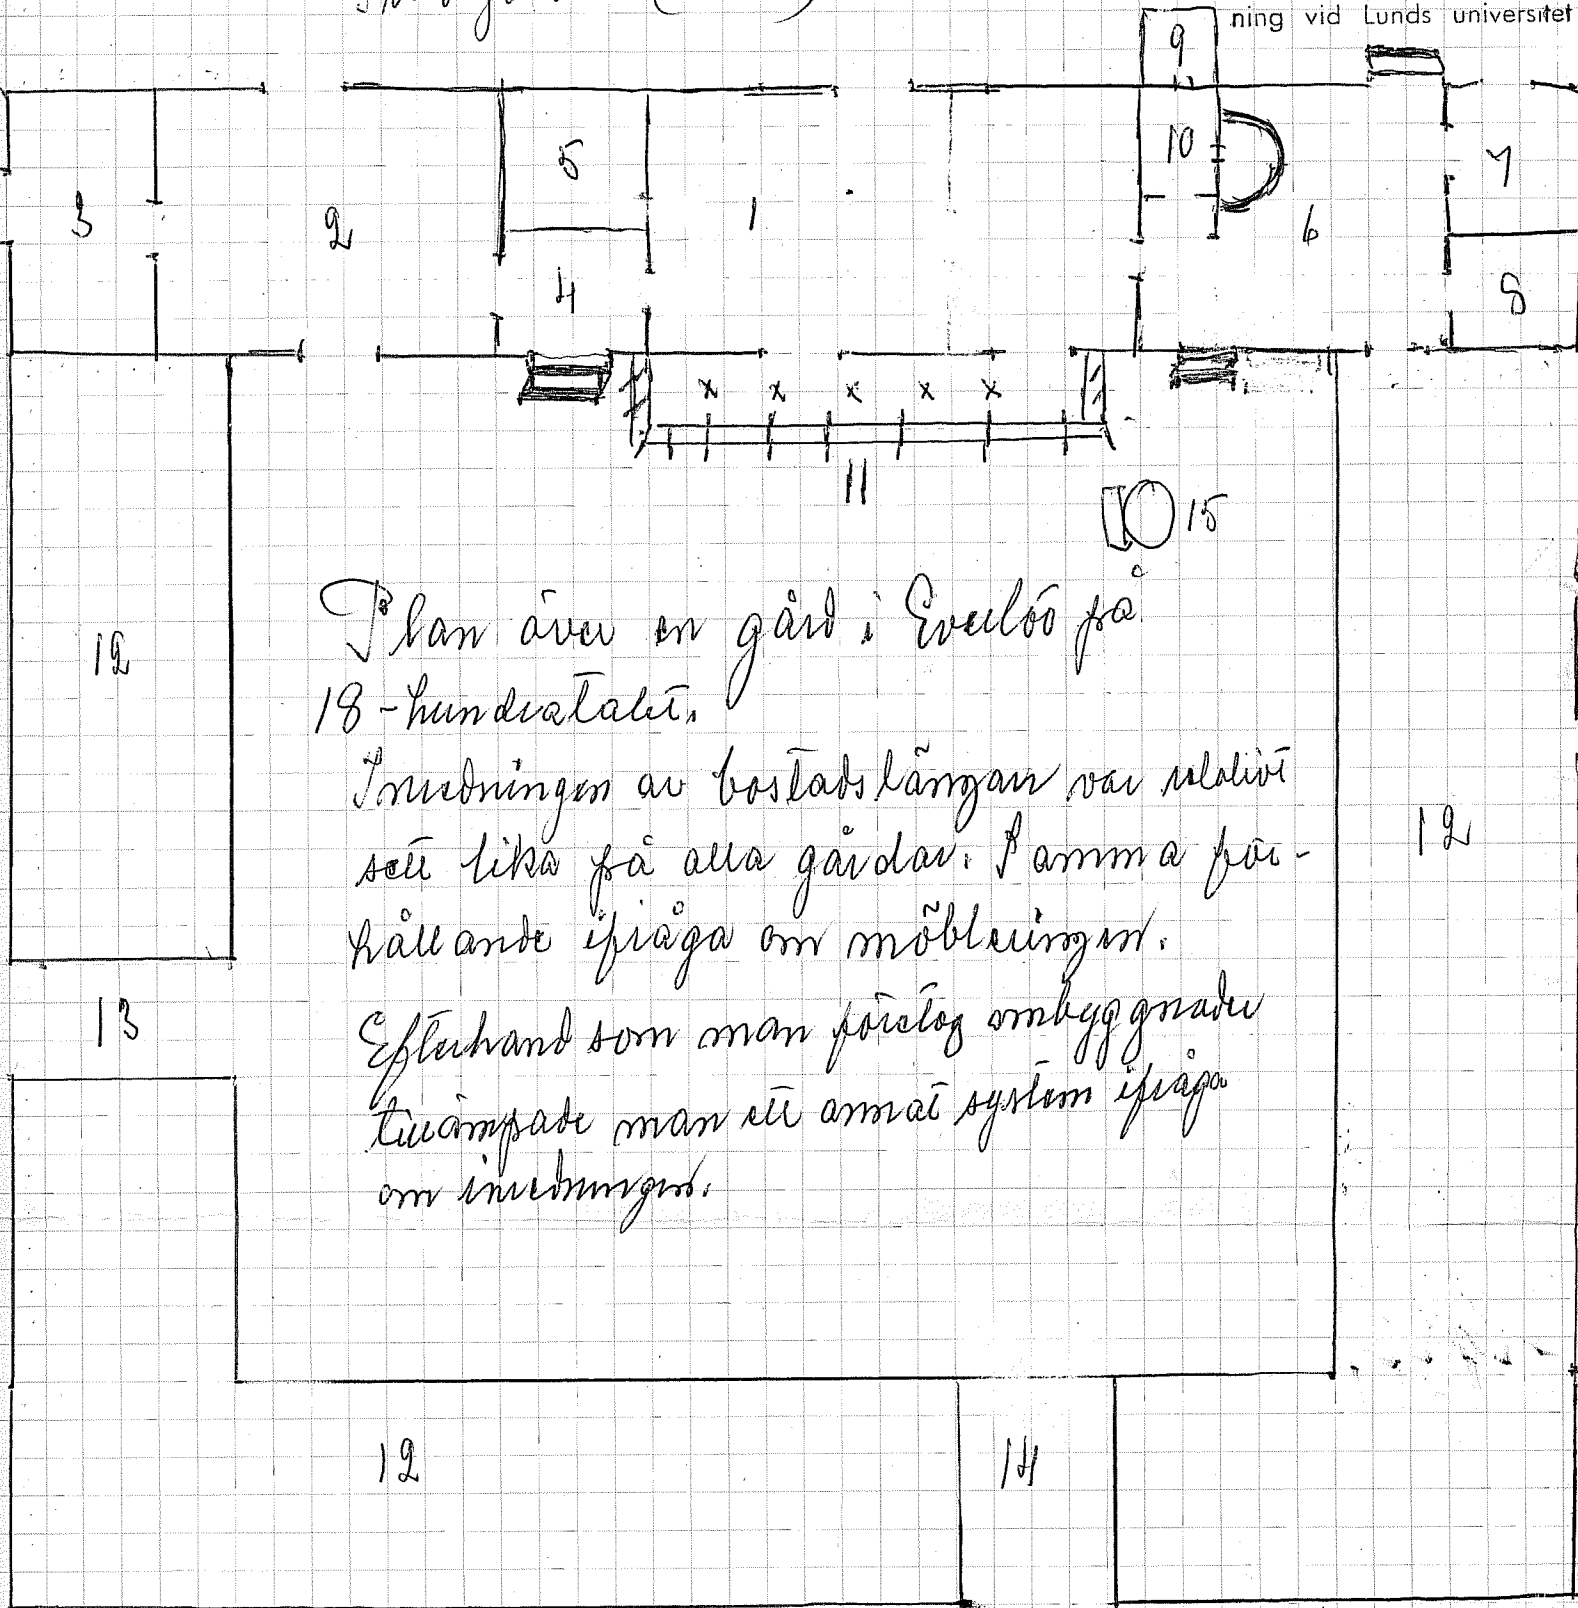 ning vid Lunds universitet
9
5
10
7
3
2
1
6
4
8
x x x x x
11
15
Plan över en gård i Everlöv på
18-hundratalet.
12
Inredningen av bostadslängan var relativt
sett lika på alla gårdar. Samma för-
12
hållande ifråga om möbleringen.
13
Efterhand som man företog ombyggnader
tillämpade man ett annat system ifråga
om inredningen.
12
14